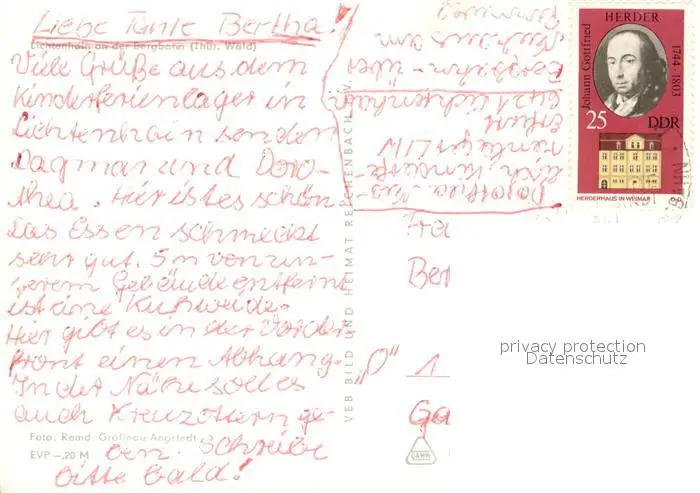 Liebe Tante Bertha!
Lichtenhain an der Bergbahn (Thür. Wald)
Viele Grüße aus dem
Kinderferienlager in
Lichtenhain senden
Dagmar und Doro-
thea. Hier ist es schön
Das Essen schmeckt
sehr gut. 5m von un-
serem Gebäude entfernt
ist eine Kuhweide.
Hier gibt es in der Vorder
front einen Abhang.
In der Nähe soll es
auch Kreuzottern ge-
ben. Schreibe
bitte bald!
Foto: Remd. Gräfinau-Angstedt
EVP —,20 M
VEB BILD UND HEIMAT REICHENBACH
Dorothea
Erfurt
Lichtenhain
Bergbahn über
Johann Gottfried
HERDER
1744-1803
25
DDR
HERDERHAUS IN WEIMAR
Fra
Ber
"O" 1
Ga
privacy protection
Datenschutz